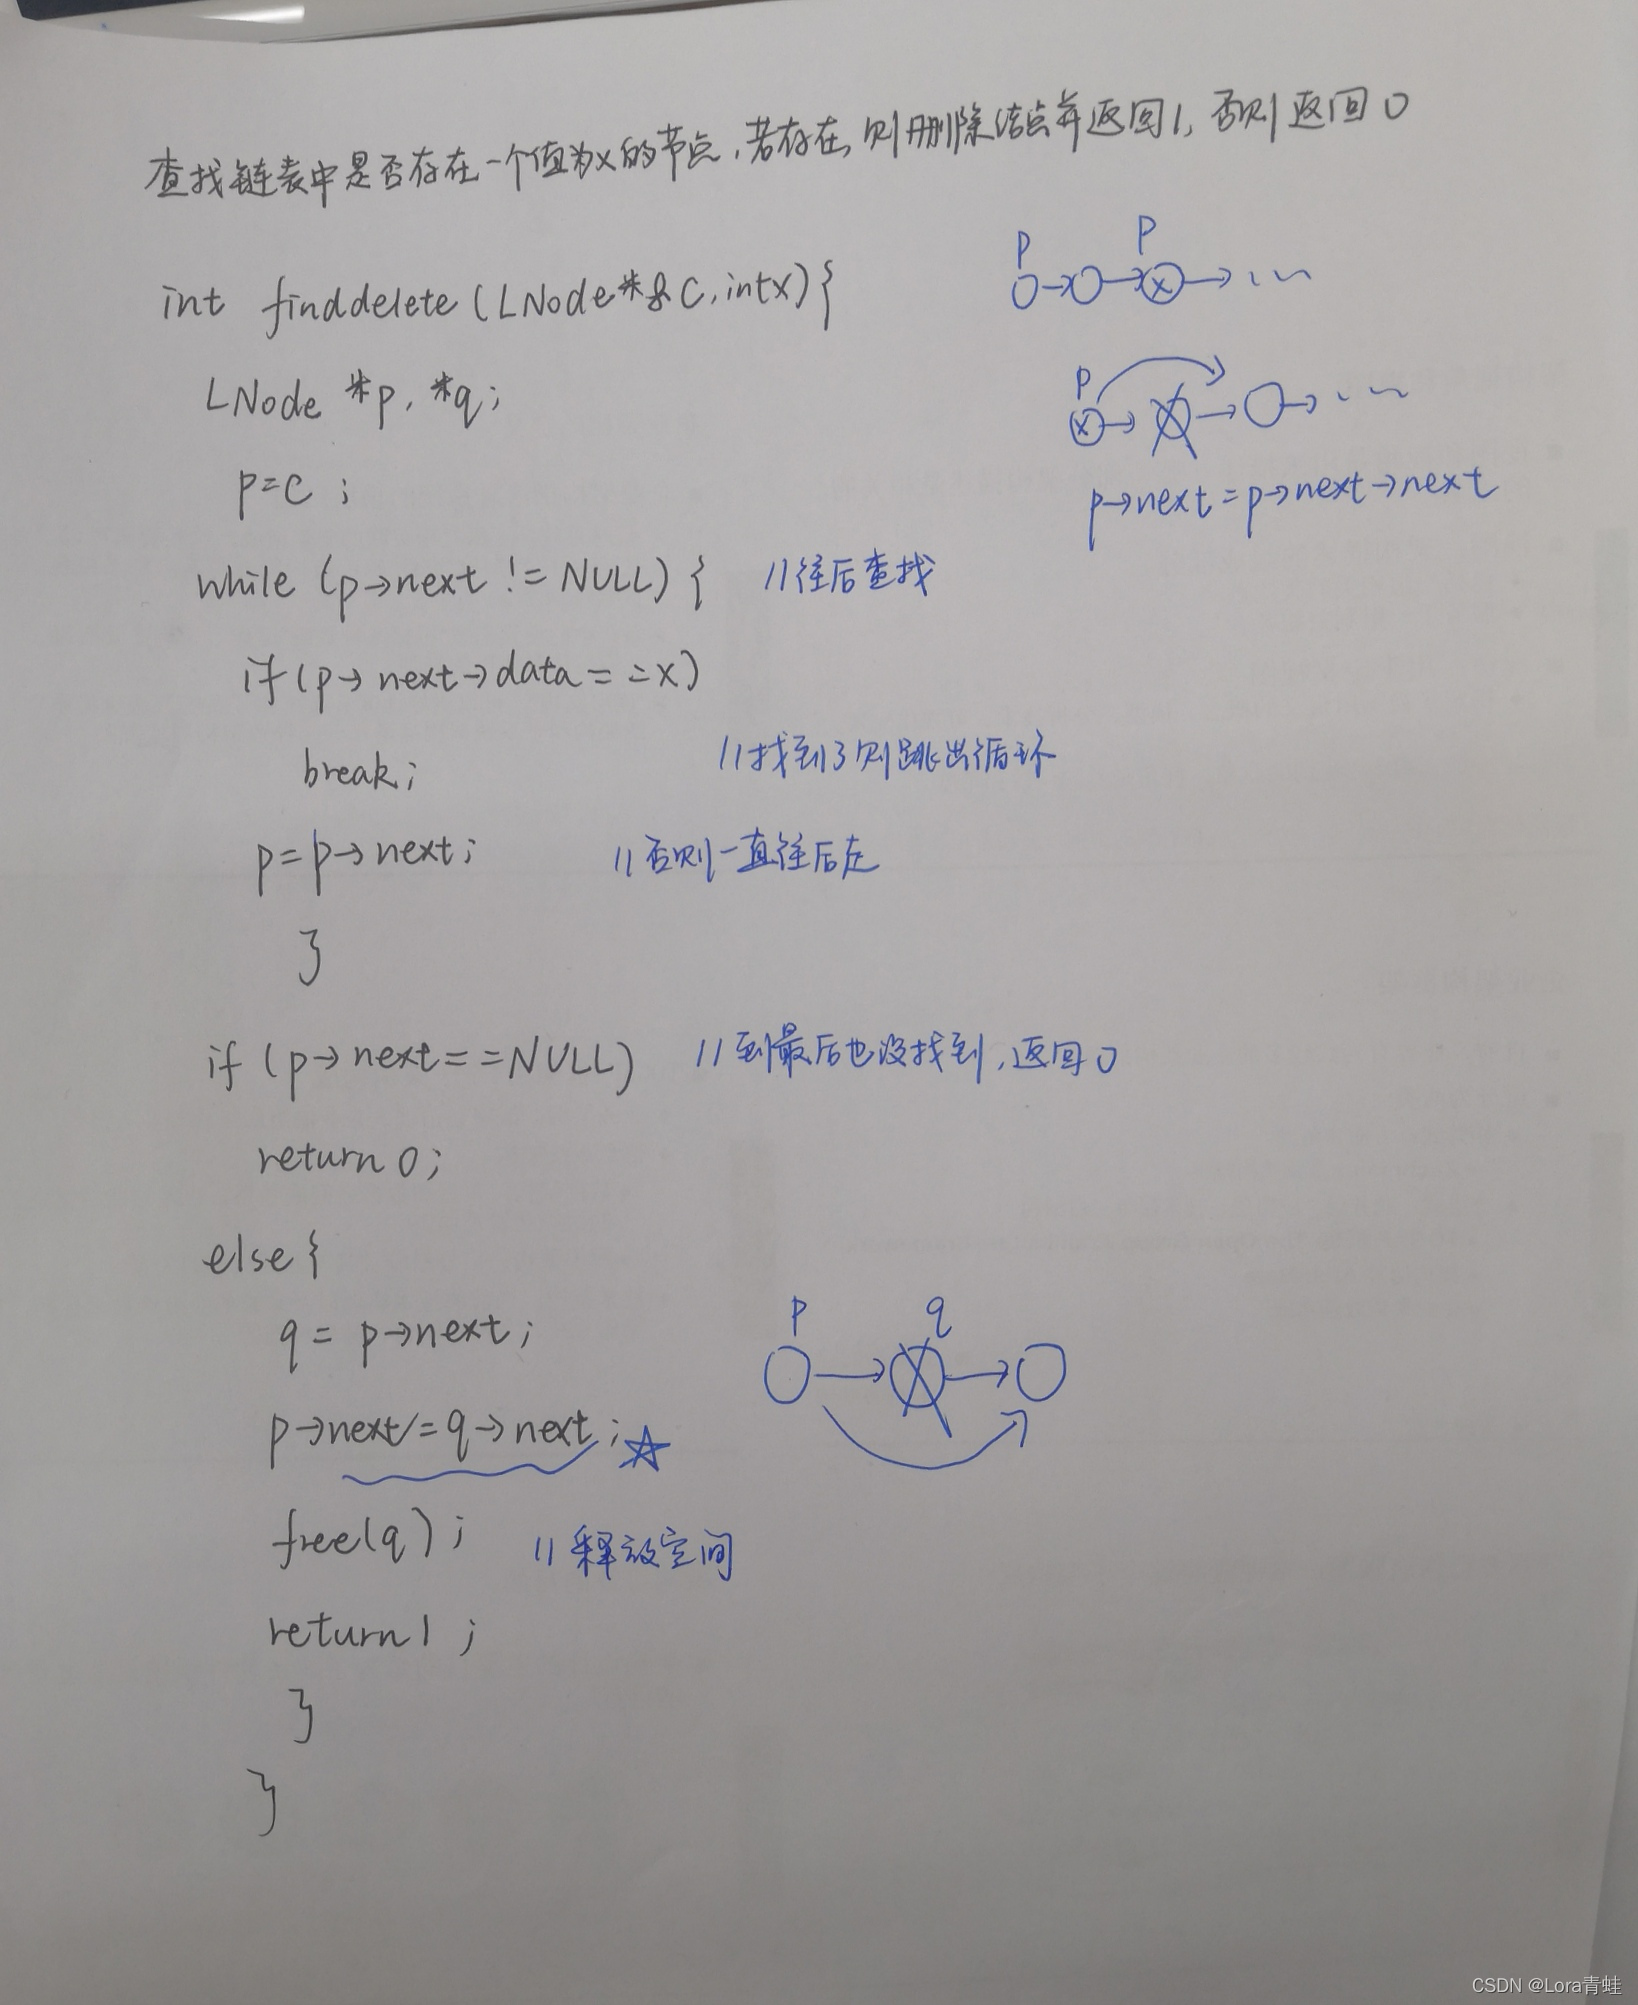 查找链表中是否存在一个值为x的节点,若存在,则删除结点并返回1,否则返回0
int finddelete(LNode*&C,intx){
P P
x
LNode *p,*q;
P
x
p=C;
p→next=p→next→next
while (p→next != NULL) { //往后查找
if(p→next→data==x)
break; //找到了则跳出循环
p=p→next; //否则一直往后走
}
if (p→next==NULL) //到最后也没找到,返回0
return 0;
else{
q = p→next;
p q
p→next=q→next;
free(q); //释放空间
return 1;
}
}
CSDN @Lora青蛙